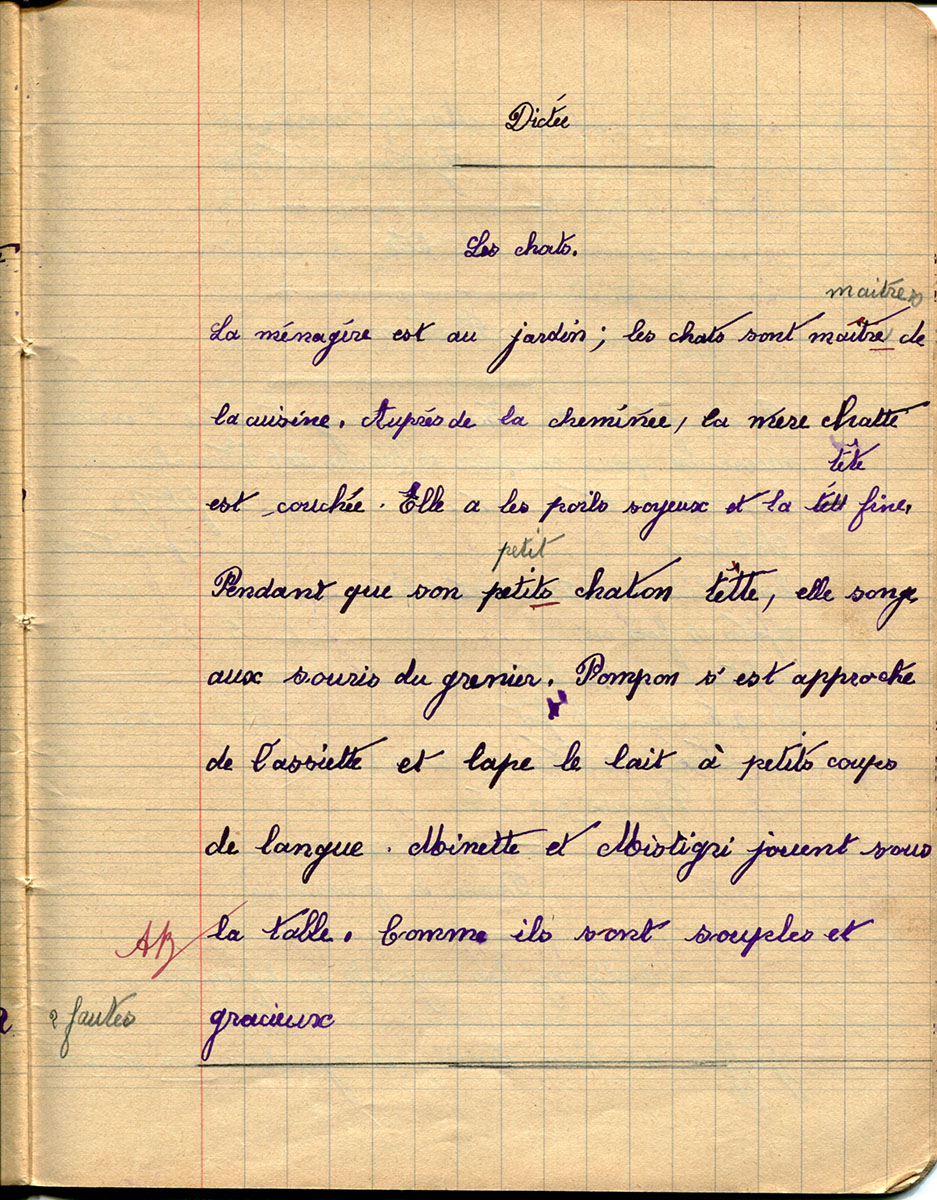 Dictée
Les chats.
maîtres
La ménagère est au jardin ; les chats sont maître de
la cuisine. Auprès de la cheminée, la mère chatte
tête
est couchée. Elle a les poils soyeux et la fine.
petit
Pendant que son petits chaton tête, elle songe
aux souris du grenier. Pompon s'est approche
de l'assiette et lape le lait à petits coups
de langue. Minette et Mistigri jouent sous
la table. Comme ils sont souples et
AB
2 fautes
gracieux